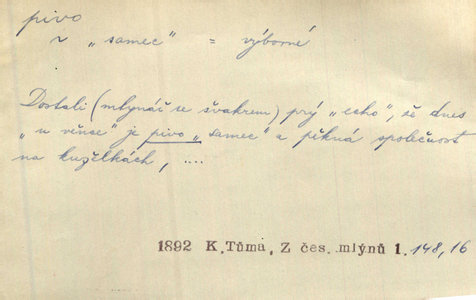 pivo
v „samec" = výborné
Dostali (mlynář se švakrem) prý „echo", že dnes
„u věnce" je pivo „samec" a pěkná společnost
na kuželkách, ....
1892 K.Tůma, Z čes. mlýnů 1. 148, 16